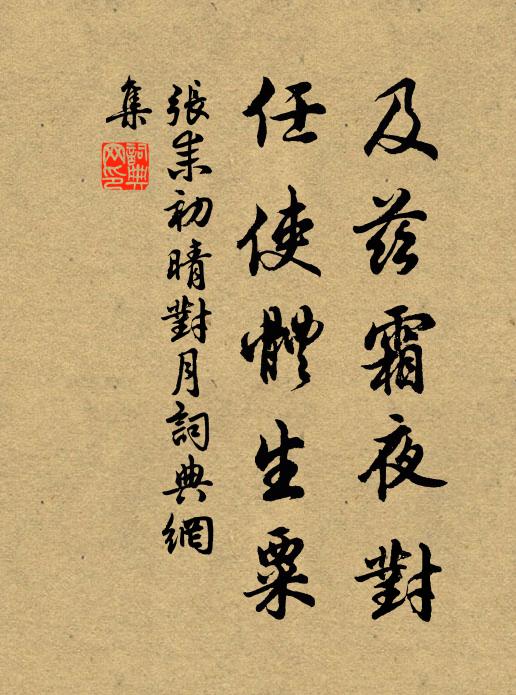 及茲霜夜對
任使體生粟
張耒初晴對月詞典網
集
詞典网印